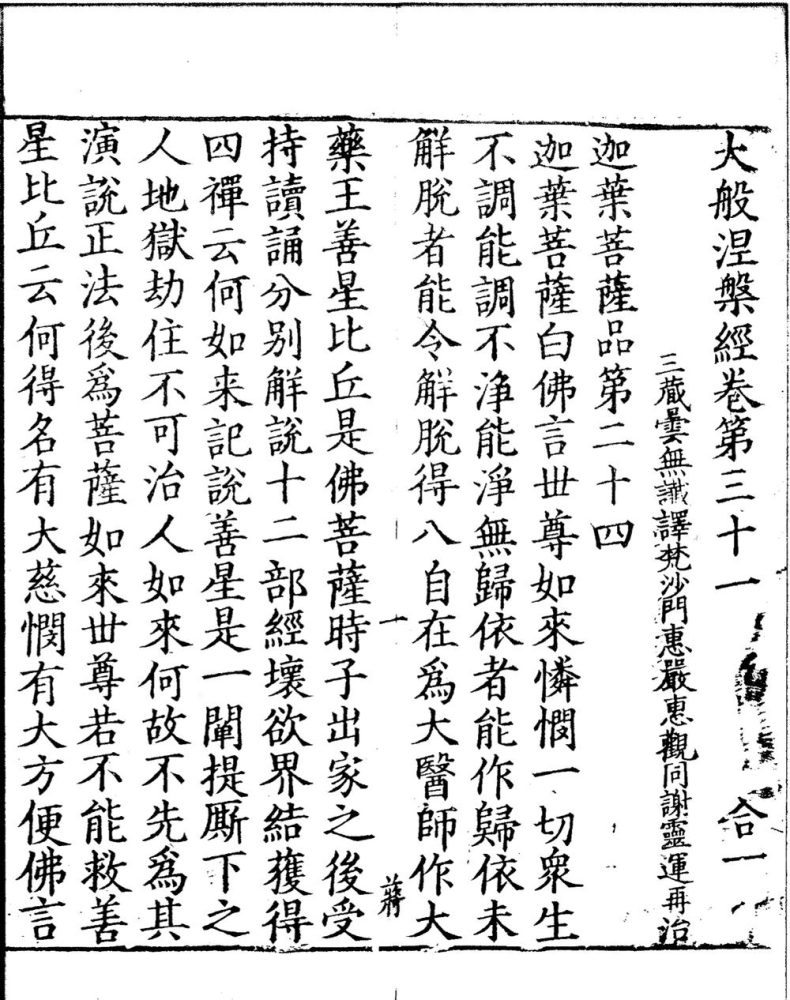 大般涅槃經卷第三十一 合一
三藏曇無讖譯梵沙門惠嚴惠觀同謝靈運再治
迦葉菩薩品第二十四
迦葉菩薩白佛言丗尊如來憐憫一切衆生
不調能調不淨能淨無歸依者能作歸依未
解脫者能令解脫得八自在爲大醫師作大
蔣
一
藥王善星比丘是佛菩薩時子出家之後受
持讀誦分別解說十二部經壞欲界結獲得
四禪云何如来記說善星是一闡提厮下之
人地獄劫住不可治人如來何故不先爲其
演說正法後爲菩薩如來丗尊若不能救善
星比丘云何得名有大慈憫有大方便佛言